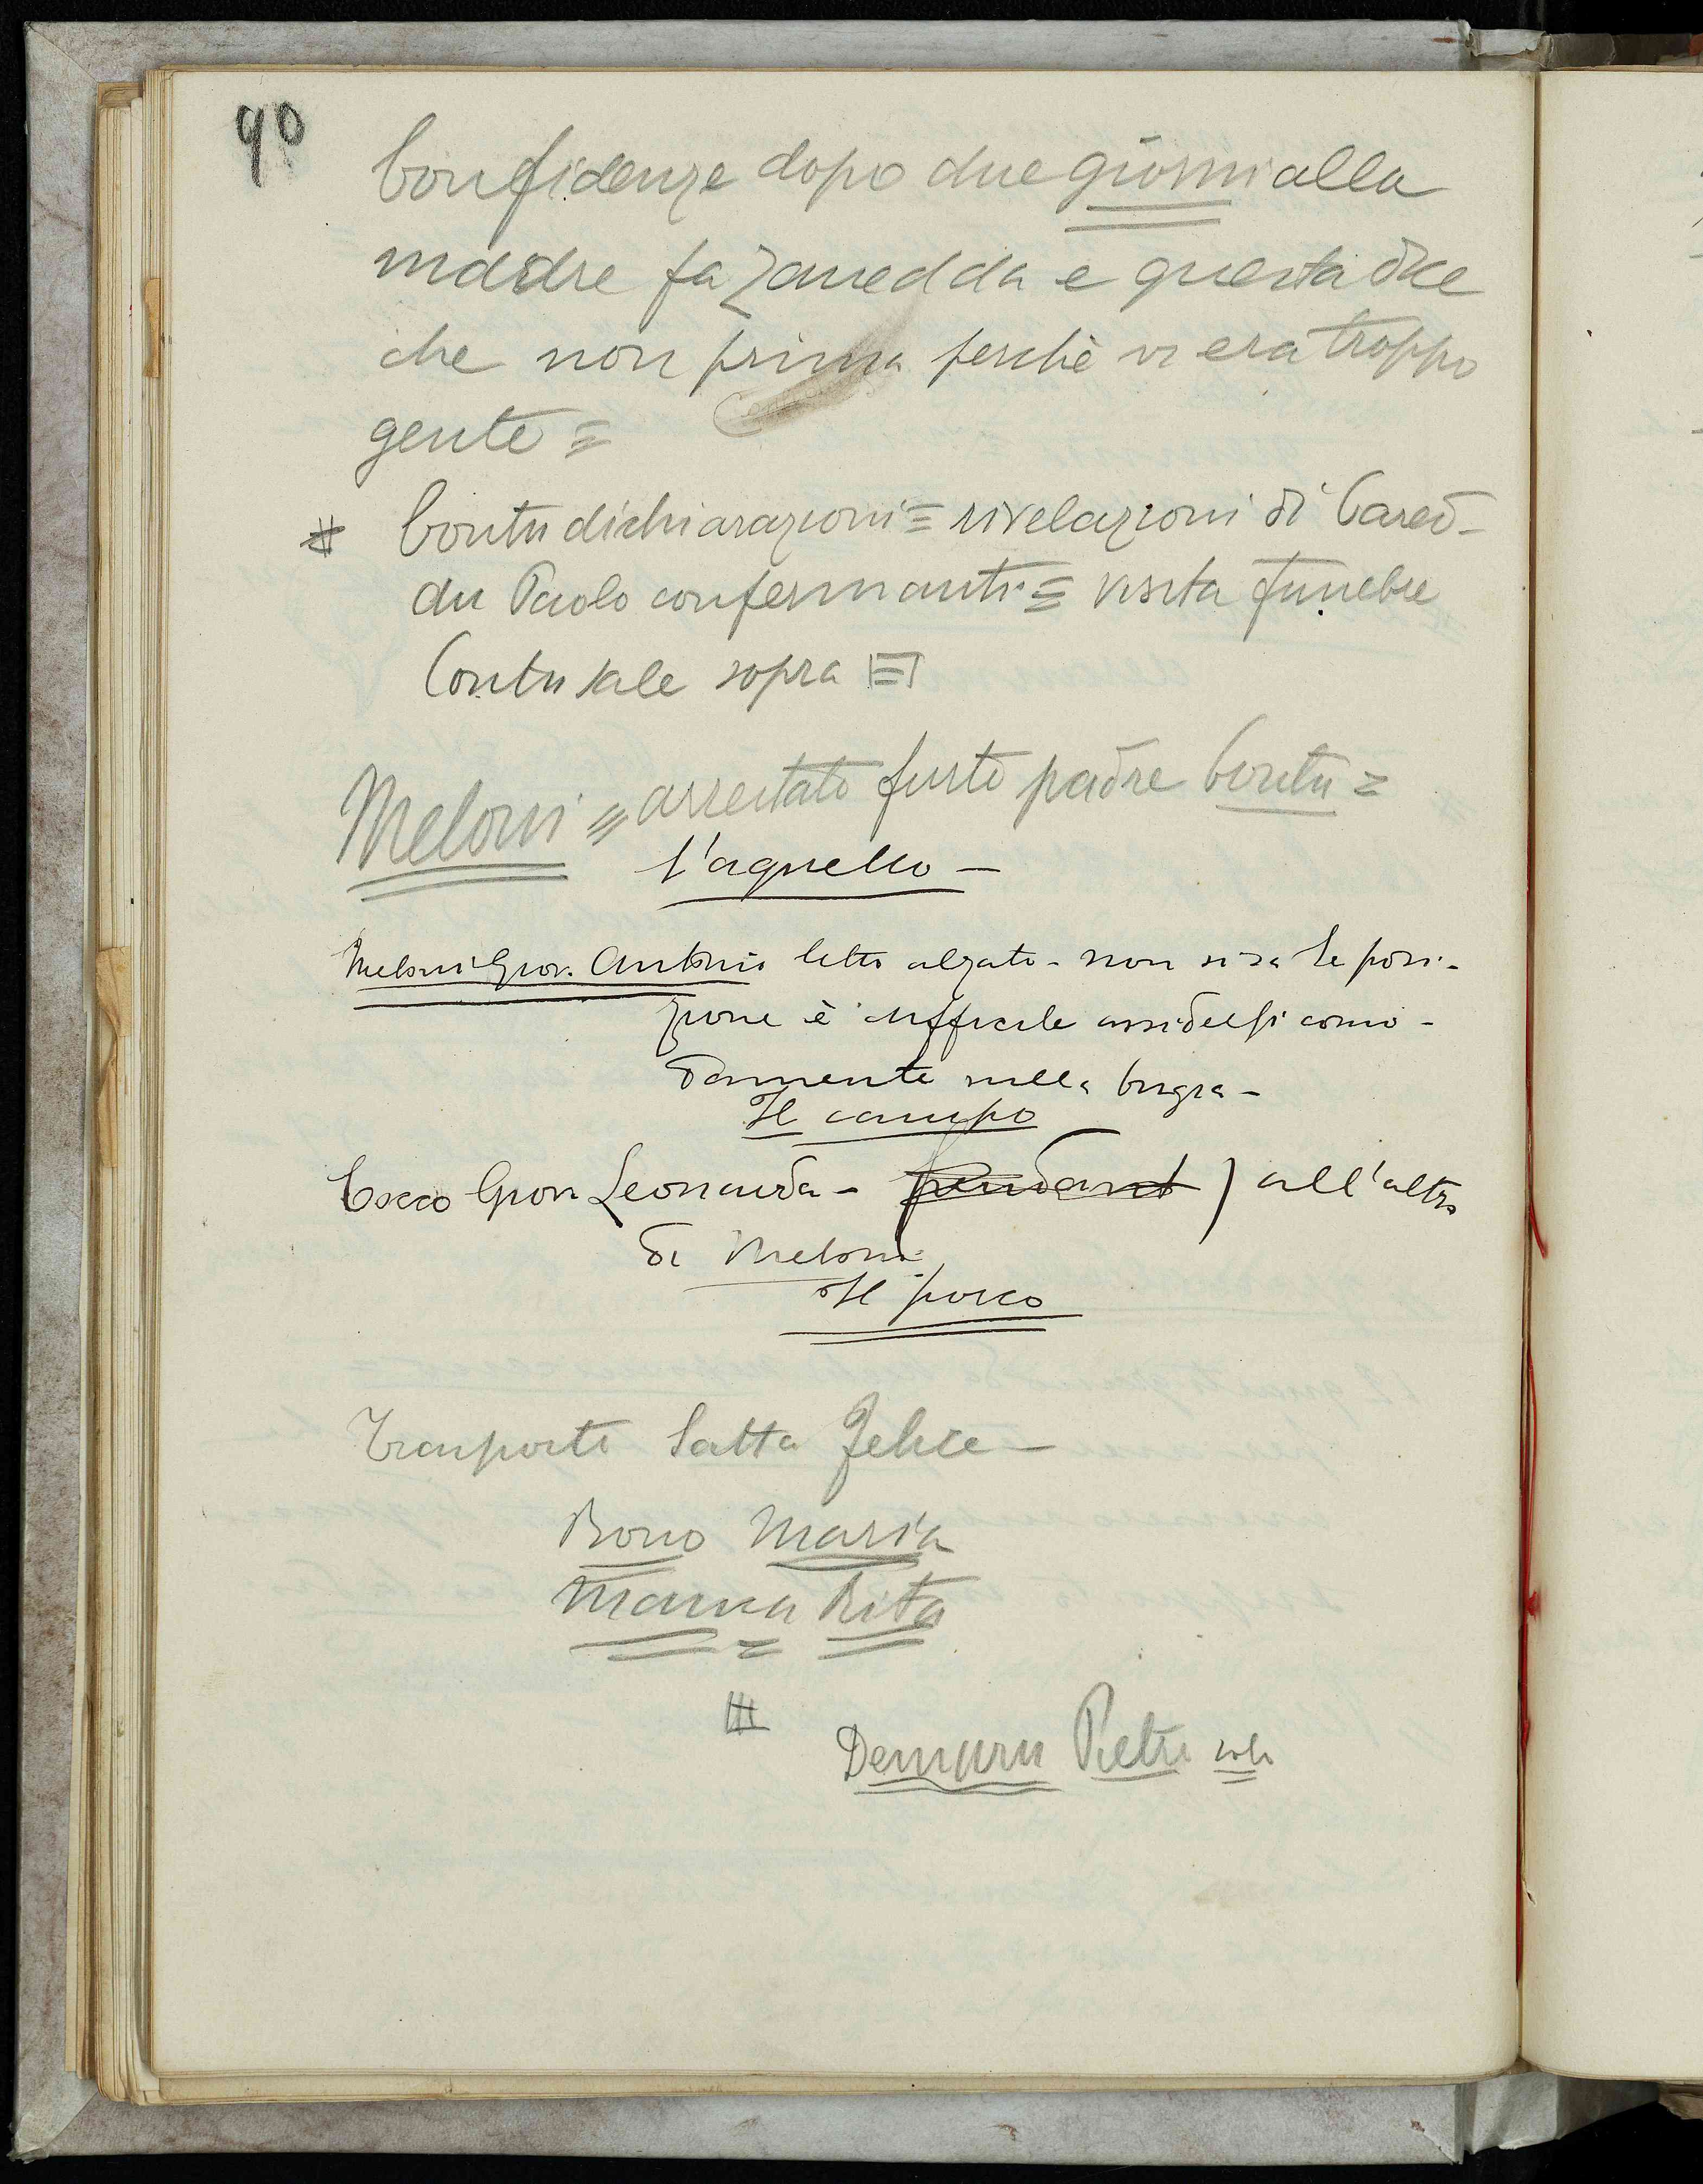 90
Confidenze dopo due giorni alla
madre fa Zanedda e questa dice
che non prima perchè vi era troppo
gente =
# Contu dichiarazioni = rivelazioni di Cared-
du Paolo confermanti = visita funebre
Contu sale sopra =
Meloni = arrestato furto padre Contu =
l'agnello -
Meloni Giov. Antonio letto alzato - non si sa la posi-
zione è difficile assidersi como-
damente sulla
Il campo
Cocco Giov. Leonarda - pendant ) all'altro
di Meloni
Il porco
Trasporto Satta Felice -
Bono Maria
Manca Rita
Demuru Pietro